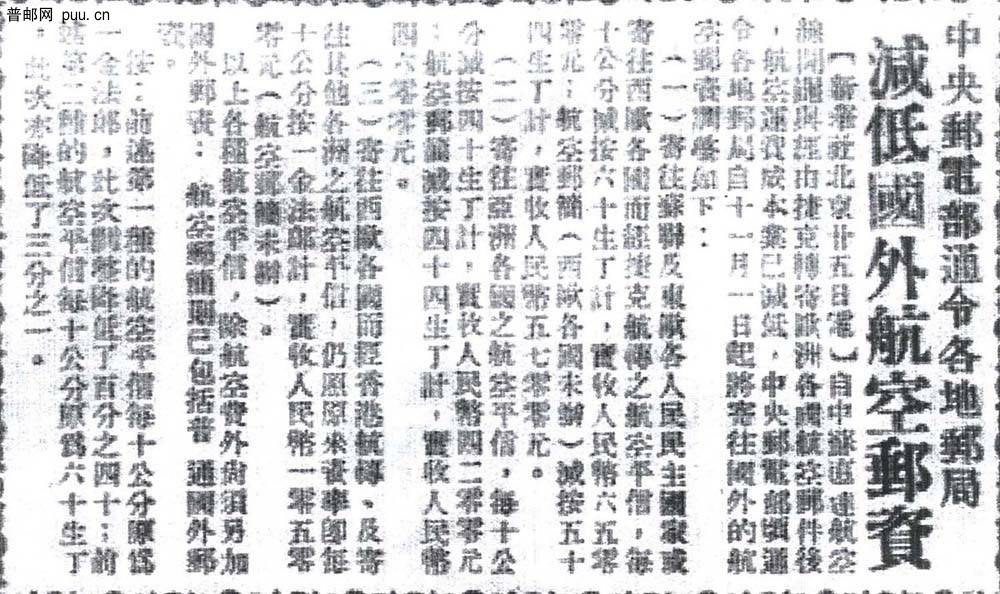 普邮网 puu.cn
中央郵電部通令各地郵局
減低國外航空郵資
【新華社北京廿五日電】自中蘇直達航空
線開闢與經由捷克轉寄歐洲各國航空郵件後
，航空運費成本業已減低，中央郵電部頃通
令各地郵局自十一月一日起將寄往國外的航
空郵資調整如下：
（一）寄往蘇聯及東歐各人民民主國家或
寄往西歐各國而經捷克航轉之航空平信，每
十公分減按六十生丁計，實收人民幣六五零
零元；航空郵簡（西歐各國未辦）減按五十
四生丁計，實收人民幣五七零零元。
（二）寄往亞洲各國之航空平信，每十公
分減按四十生丁計，實收人民幣四二零零元
；航空郵簡減按四十四生丁計，實收人民幣
四六零零元。
（三）寄往西歐各國而經香港航轉、及寄
往其他各洲之航空平信，仍照原來資率即每
十公分按一金法郎計，實收人民幣一零五零
零元（航空郵簡未辦）。
以上各種航空平信，除航空費外尚須另加
國外郵資；航空郵簡則已包括普通國外郵
資。
按：前述第一種的航空平信每十公分原爲
一金法郎，此次調整降低了百分之四十；前
述第二種的航空平信每十公分原爲六十生丁
，此次亦降低了三分之一。